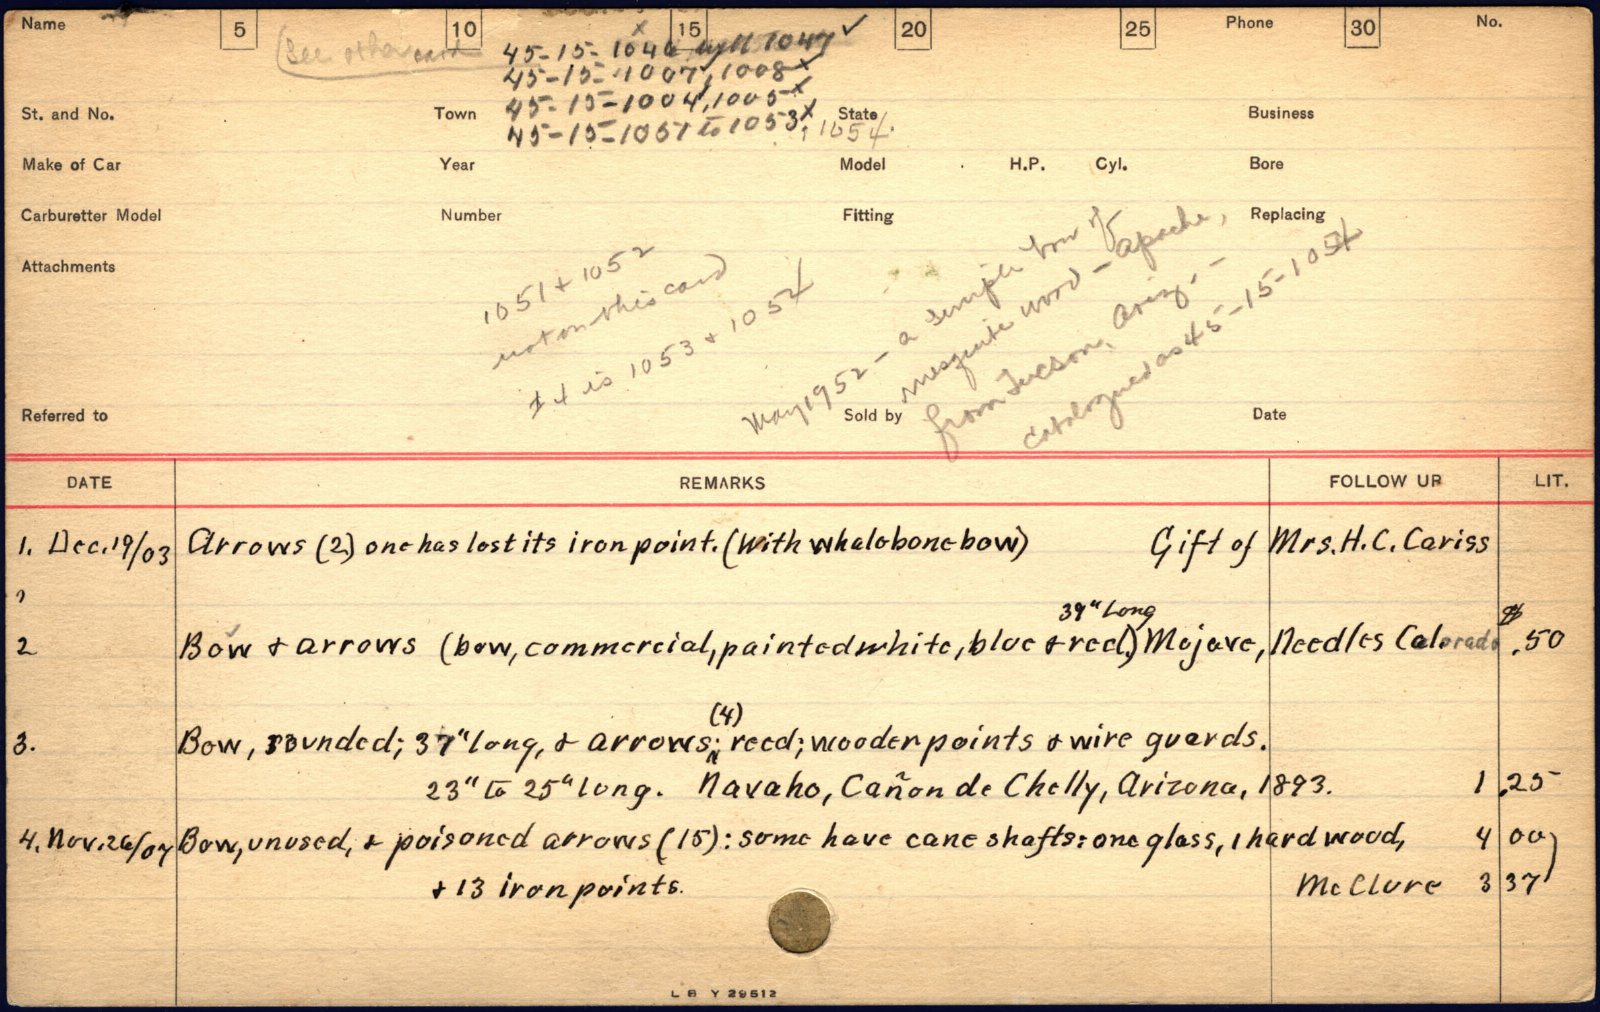 Name 5 10 15 20 25 Phone 30 No.
(See other card 45-15-1046 1047 ✓
45-15-1007, 1008 x
St. and No. Town 45-15-1004, 1005 x State Business
45-15-1051 to 1053, 1054.
Make of Car Year Model H.P. Cyl. Bore
Carburetter Model Number Fitting Replacing
Attachments
1051 + 1052
not on this card
It is 1053 + 1054
May 1952 - a simple bow of
mesquite wood - Apache,
from Tucson, Ariz. -
catalogued as 45-15-1054
Referred to Sold by Date
DATE REMARKS FOLLOW UP LIT.
1. Dec. 19/03 Arrows (2) one has lost its iron point. (With whalebone bow) Gift of Mrs. H. C. Cariss
39" long
2 Bow & arrows (bow, commercial, painted white, blue & red.) Mojave, Needles Calorado $ .50
(4)
3. Bow, rounded; 37" long, & arrows; reed; wooden points & wire guards.
23" to 25" long. Navaho, Cañon de Chelly, Arizona, 1893. 1 .25
4. Nov. 26/07 Bow, unused, & poisoned arrows (15): some have cane shafts: one glass, 1 hard wood, 4 00
& 13 iron points. McClure 3 37
L B Y 29512